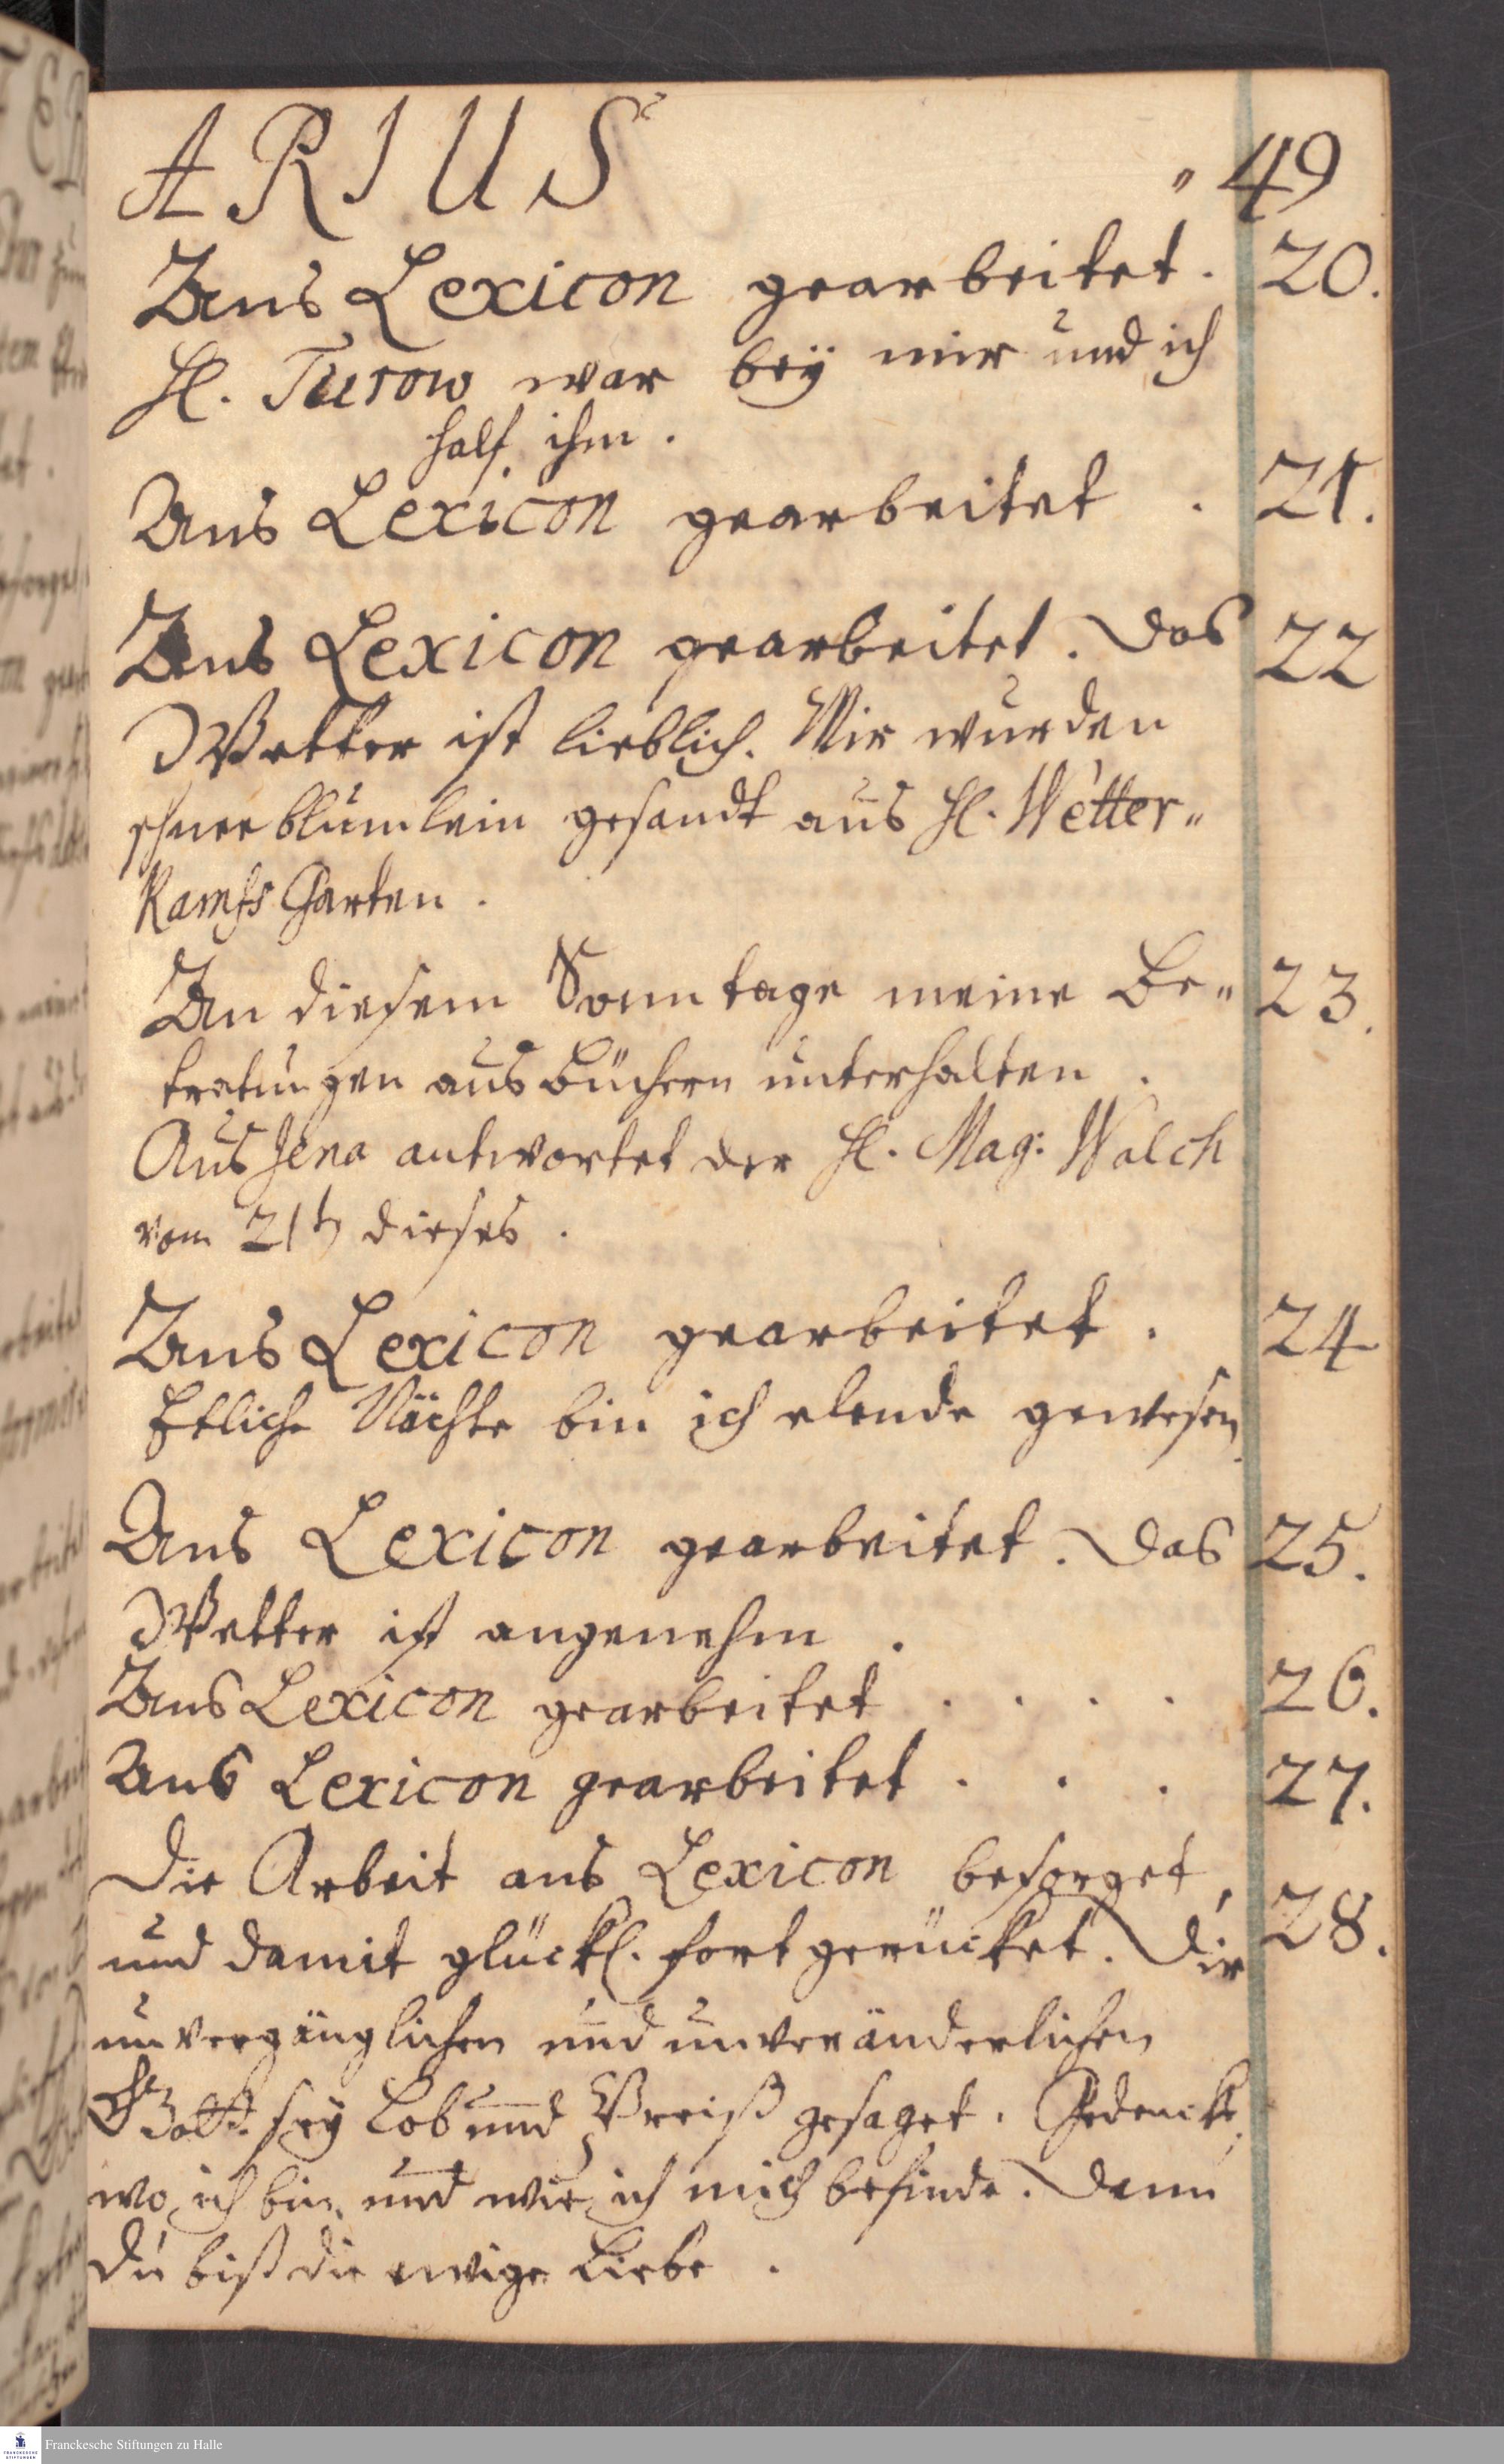 ARIUS " 49
Ans Lexicon gearbeitet. 20.
H. Turow war bey mir und ich
half ihm.
Ans Lexicon gearbeitet . 21.
Ans Lexicon gearbeitet. Das 22
Wetter ist lieblich. Mir wurden
schneeblumlein gesandt aus H. Wetter"
Kamfs Garten.
An diesem Sonntage meine Be" 23.
tratungen aus Büchern unterhalten .
Aus Jena antwortet der H. Mag: Walch
vom 21ten dieses .
Ans Lexicon gearbeitet . 24
Etliche Nächte bin ich elende gewesen.
Ans Lexicon gearbeitet. Das 25.
Wetter ist angenehm .
Ans Lexicon gearbeitet . . . . 26.
Ans Lexicon gearbeitet . . . 27.
Die Arbeit ans Lexicon besorget,
und damit glückl. fortgerücket. Dir 28.
unvergänglichen und unveränderlichen
Gott sey Lob und Preiß gesaget. Gedencke,
wo ich bin, und wie ich mich befinde. Denn
du bist die ewige Liebe .
Franckesche Stiftungen zu Halle